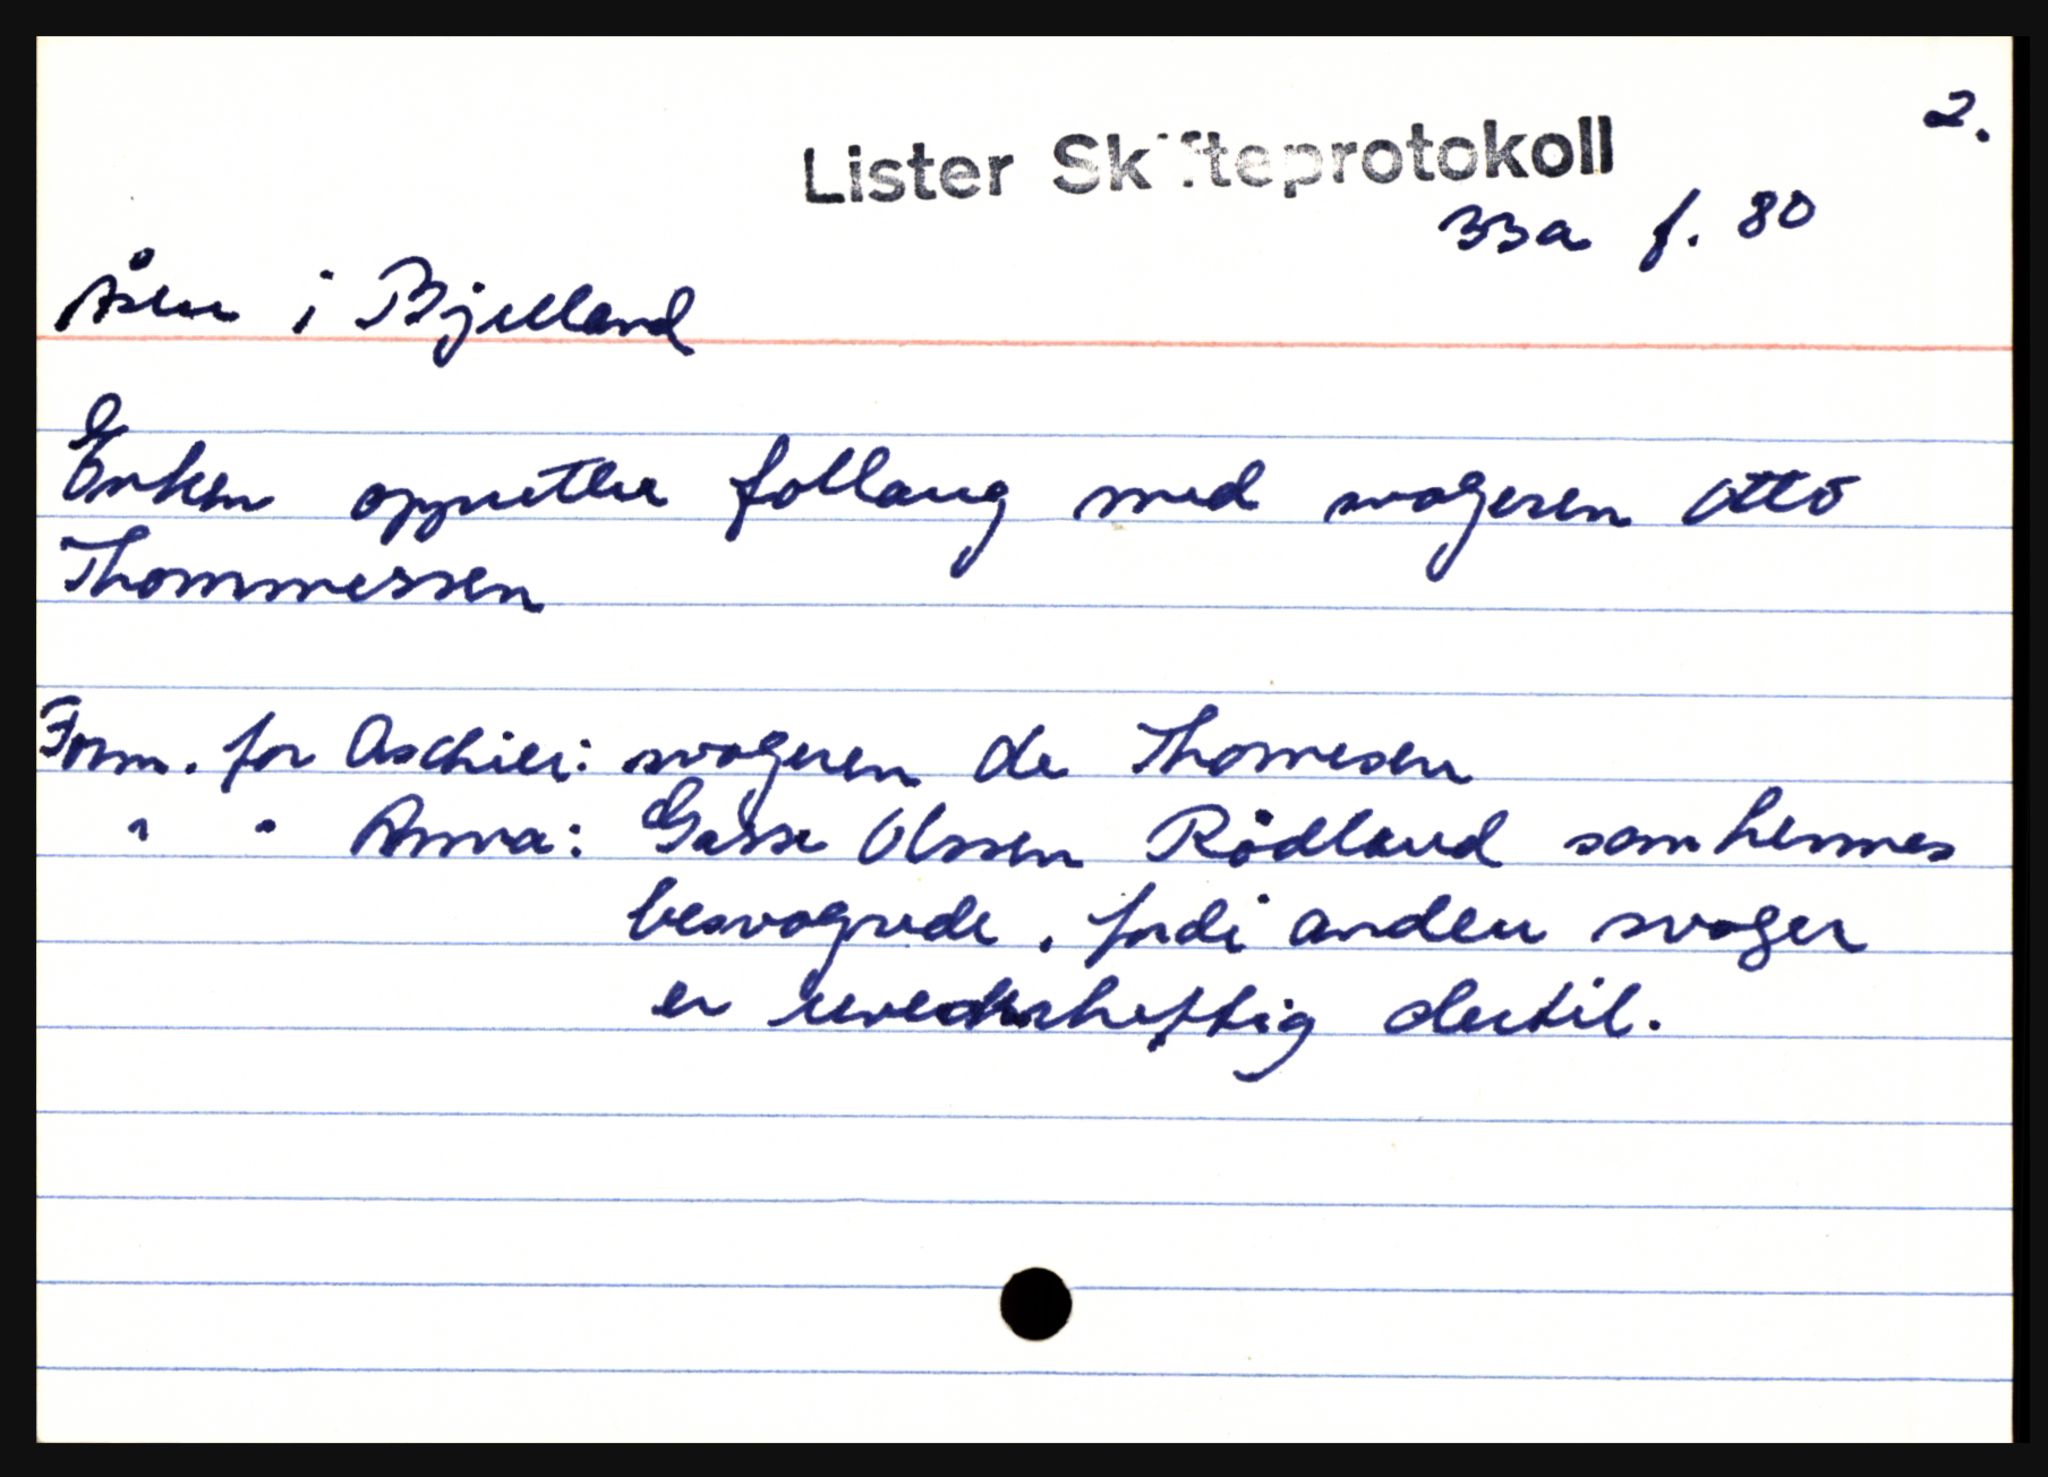 2.
Lister Skifteprotokoll
33a f. 80
Åsen i Bjelland
Enken oppretter fellaug med svogeren Otto
Thommessen
Form. for Aschier: svogeren de Thomesen
" " Anna: Gasse Olssen Rødland som hennes
besvogrede, fordi anden svoger
er uvederheftig dertil.